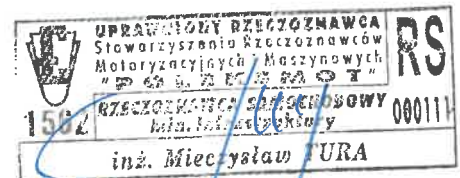 UPRAWNIONY RZECZOZNAWCA
Stowarzyszenia Rzeczoznawców
Motoryzacyjnych i Maszynowych
RS
RZECZOZNAWCA SAMOCHODOWY
000111
inż. Mieczysław TURA